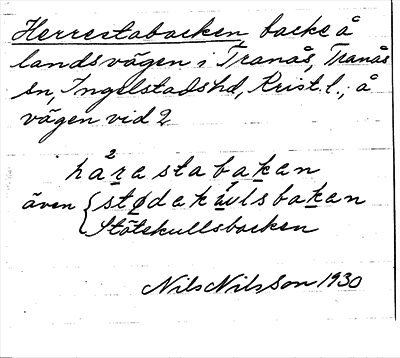 Herrestabacken, backe å
landsvägen i Tranås, Tranås
sn, Ingelstads hd, Krist. l., å
vägen vid 2
härastabakan
även { stødekulsbakan
Stötekullsbacken
Nils Nilsson 1930